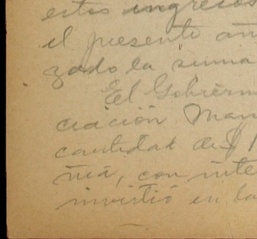 estos ingresos
el presente añ
zado la suma
El Gobiern
ciación Man
cantidad de $ 1
ñia, con inte
invirtió en la